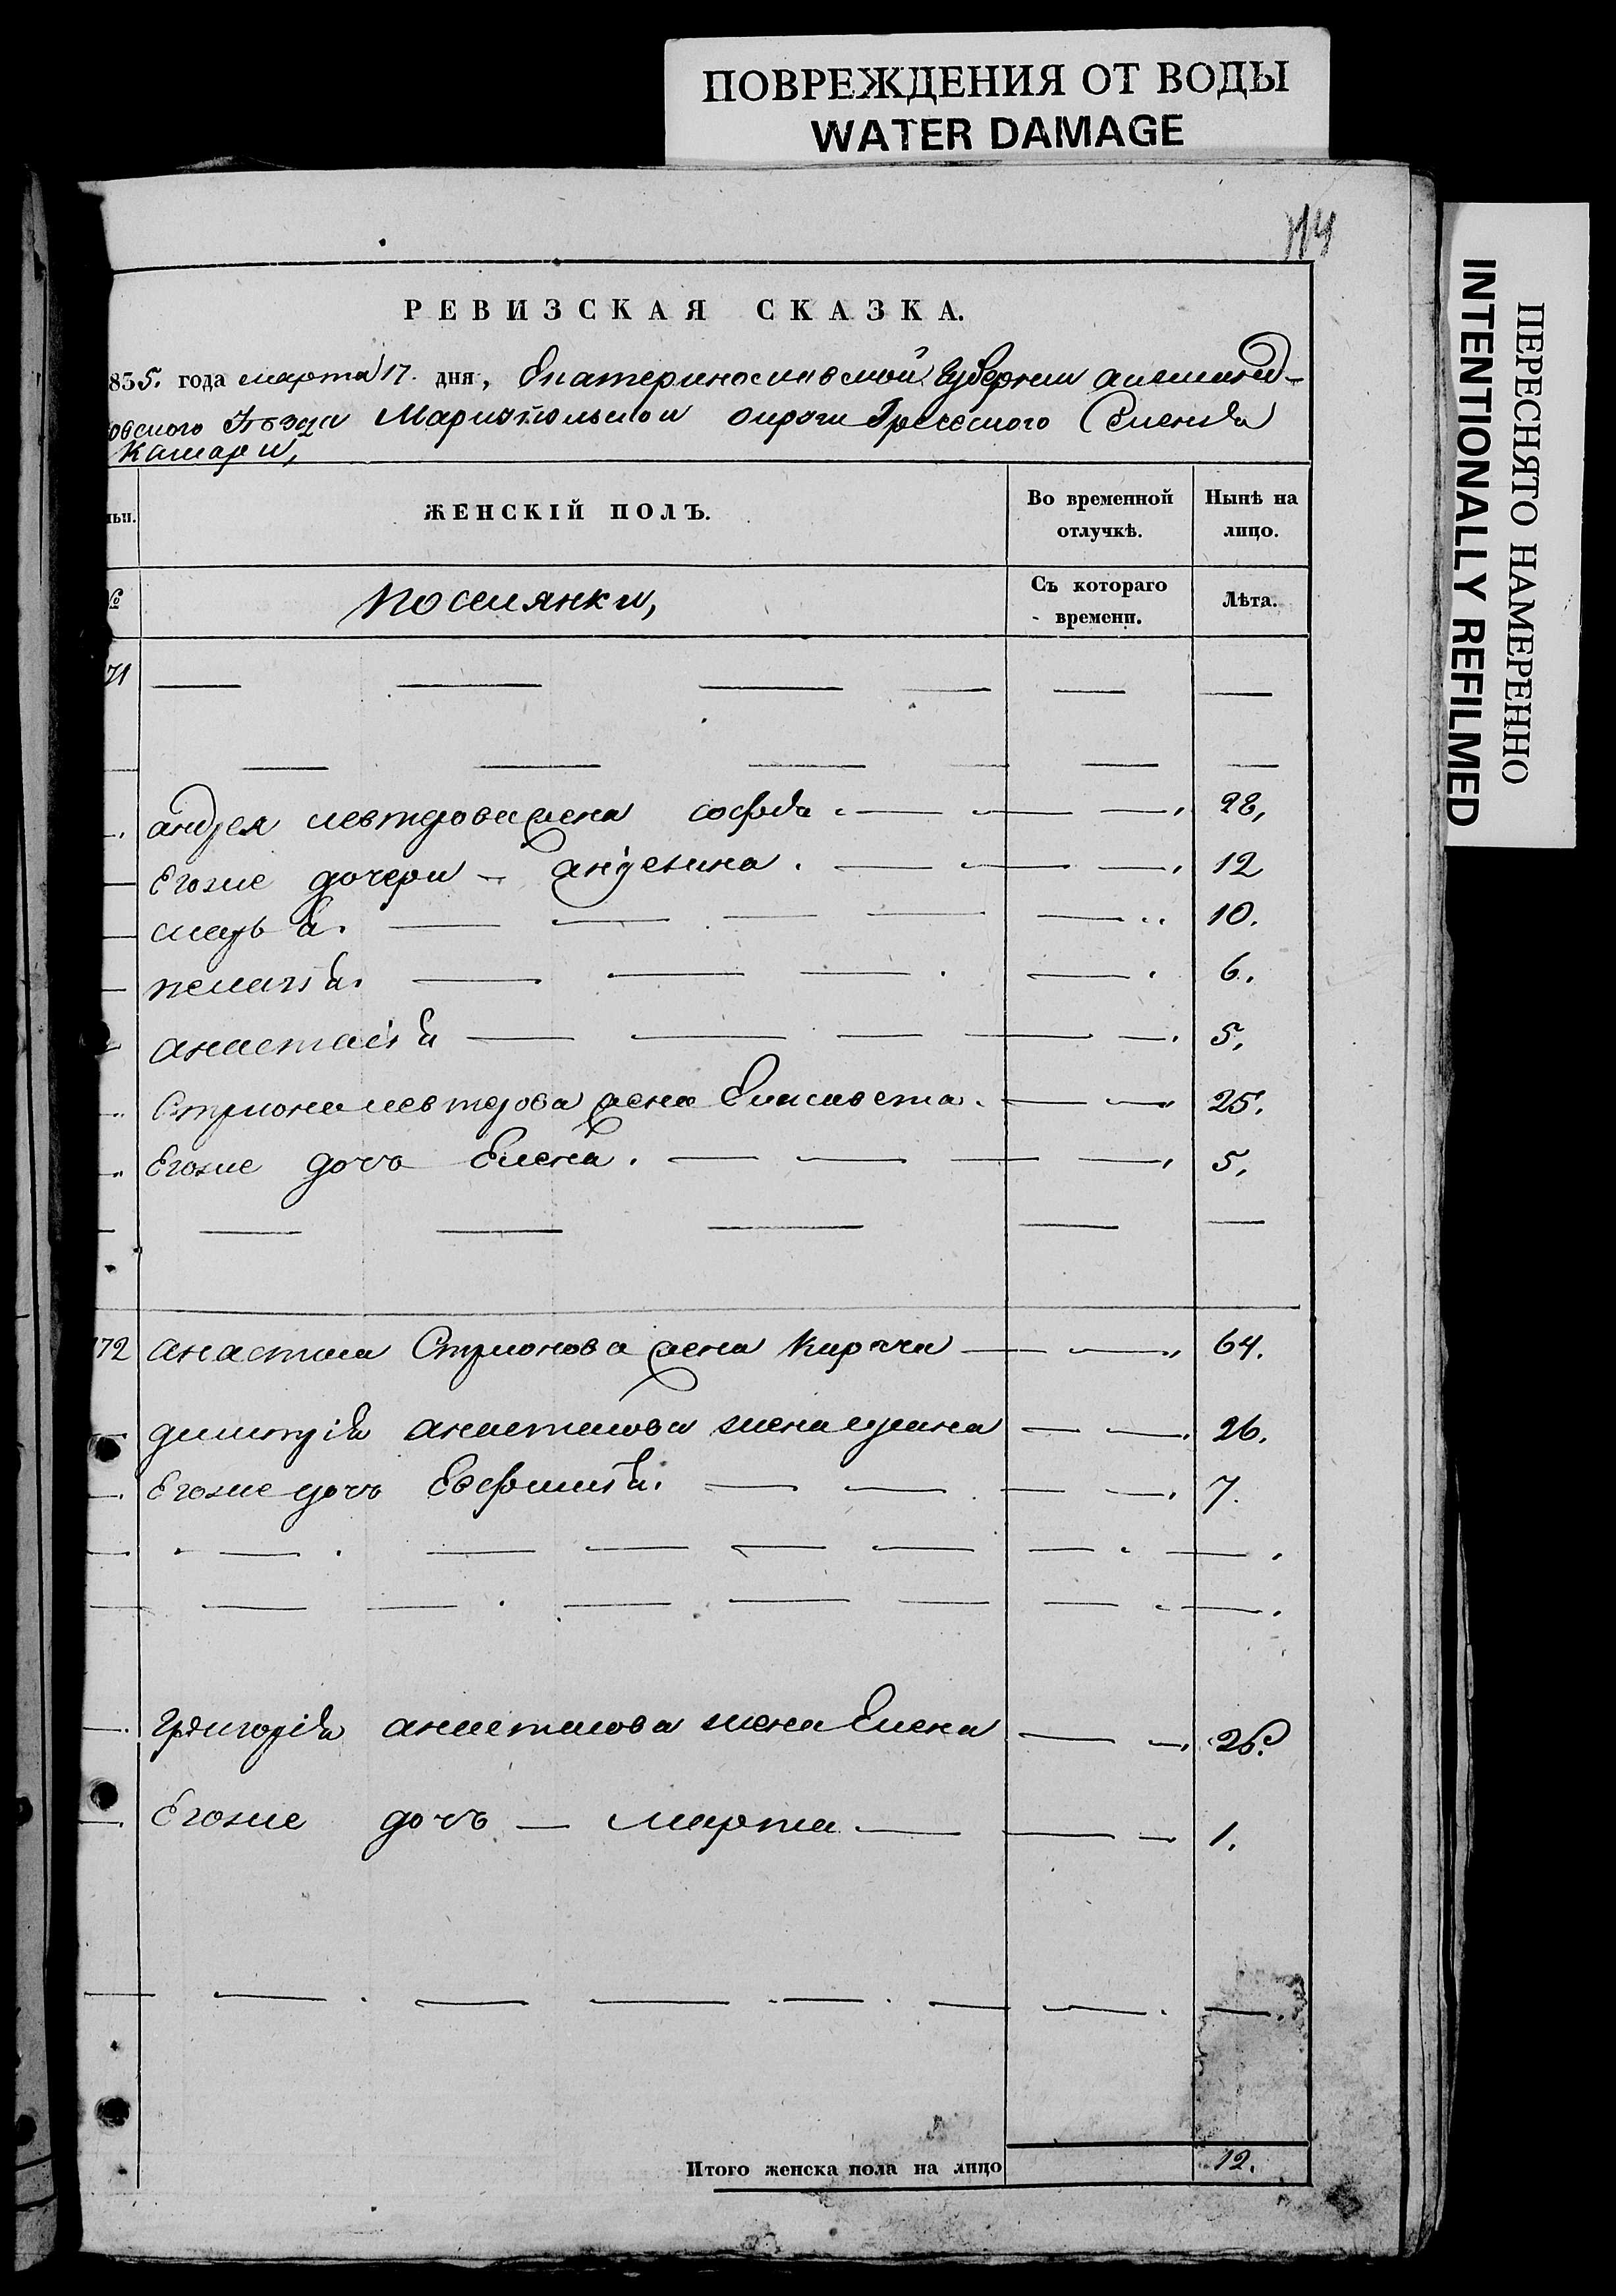 ПОВРЕЖДЕНИЯ ОТ ВОДЫ
WATER DAMAGE
114
ПЕРЕСНЯТО НАМЕРЕННО
INTENTIONALLY REFILMED
РЕВИЗСКАЯ СКАЗКА.
835. года марта 17. дня, Екатеринославской Губернии александ-
овского уѣзда Мариупольской округи Греческого Селенія
Камари,
ьи.
ЖЕНСКІЙ ПОЛЪ.
Во временной отлучкѣ.
Нынѣ на лицо.
№
поселянки,
Съ котораго времени.
Лѣта.
71
андрея левтерова жена софія 28,
Егоже дочери - ангелина. 12
марья. 10.
пелагія. 6.
анастасія 5,
Стриона левтерова жена Елисавета. 25.
Егоже дочь Елена. 5,
172 анастаса Стрионова жена Кирачи 64.
димитрія анастасова жена ирина 26.
Егоже дочь Евфимія. 7.
Григорія анастасова жена Елена 26.
Егоже дочь — марта 1.
Итого женска пола на лицо 12.